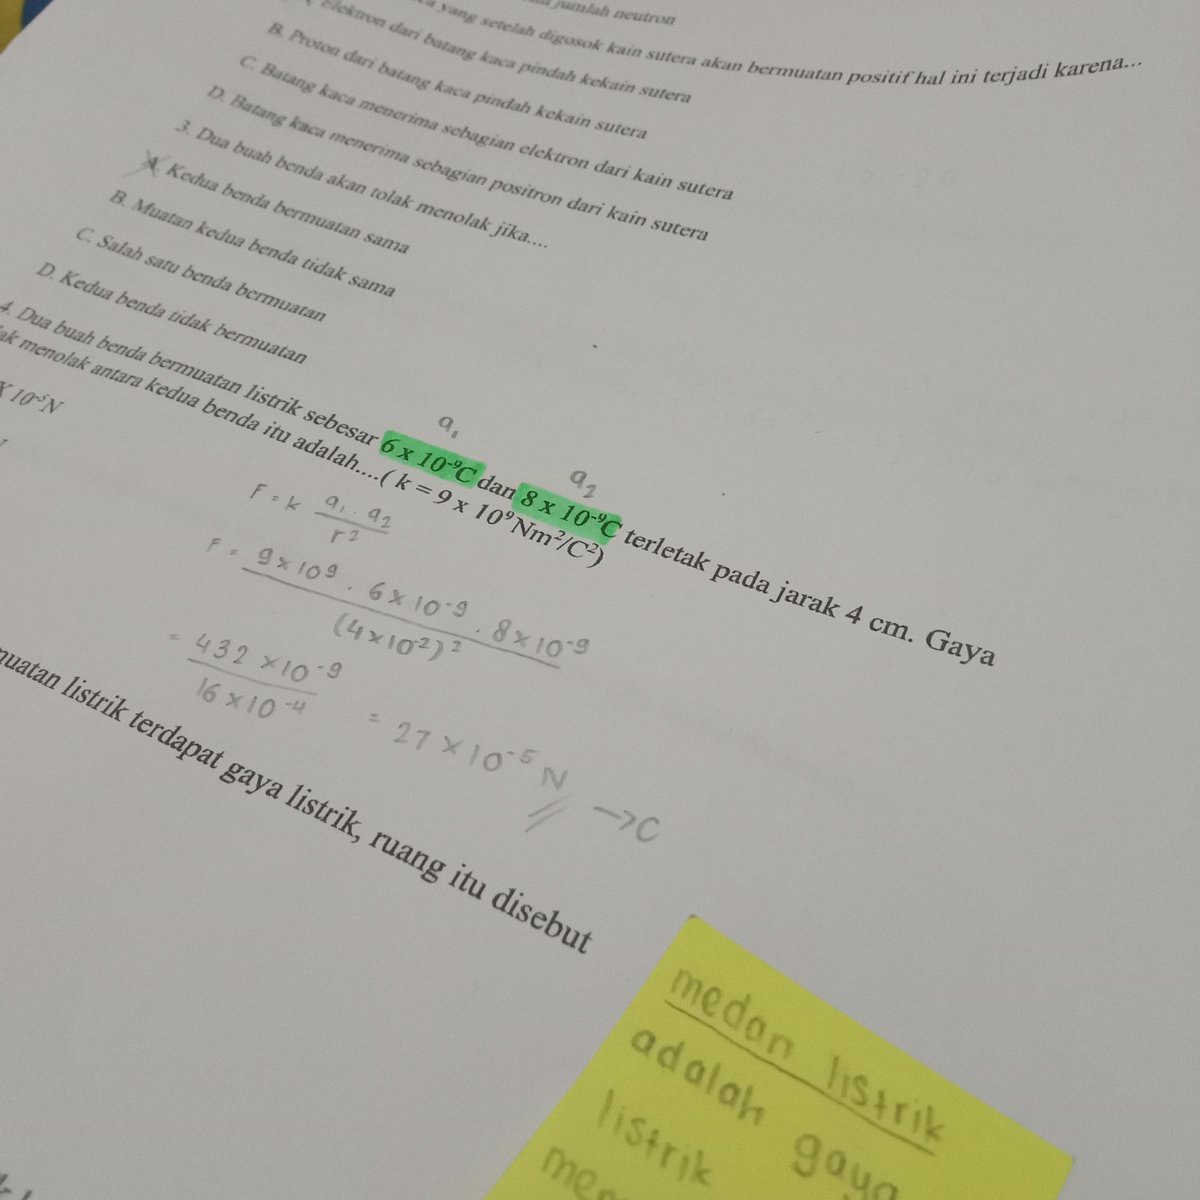 jumlah neutron
yang setelah digosok kain sutera akan bermuatan positif hal ini terjadi karena...
Elektron dari batang kaca pindah kekain sutera
B. Proton dari batang kaca pindah kekain sutera
C. Batang kaca menerima sebagian elektron dari kain sutera
D. Batang kaca menerima sebagian positron dari kain sutera
3. Dua buah benda akan tolak menolak jika....
A. Kedua benda bermuatan sama
B. Muatan kedua benda tidak sama
C. Salah satu benda bermuatan
D. Kedua benda tidak bermuatan
q₁
q₂
4. Dua buah benda bermuatan listrik sebesar 6 x 10⁻⁹C dan 8 x 10⁻⁹C terletak pada jarak 4 cm. Gaya
menolak antara kedua benda itu adalah....( k = 9 x 10⁹Nm²/C²)
X 10⁻⁵N
F = k q₁ . q₂
r²
F = 9 x 10⁹ . 6 x 10⁻⁹ . 8 x 10⁻⁹
(4 x 10⁻²)²
= 432 x 10⁻⁹
16 x 10⁻⁴
= 27 x 10⁻⁵ N → C
listrik terdapat gaya listrik, ruang itu disebut
medan listrik
adalah gaya
listrik